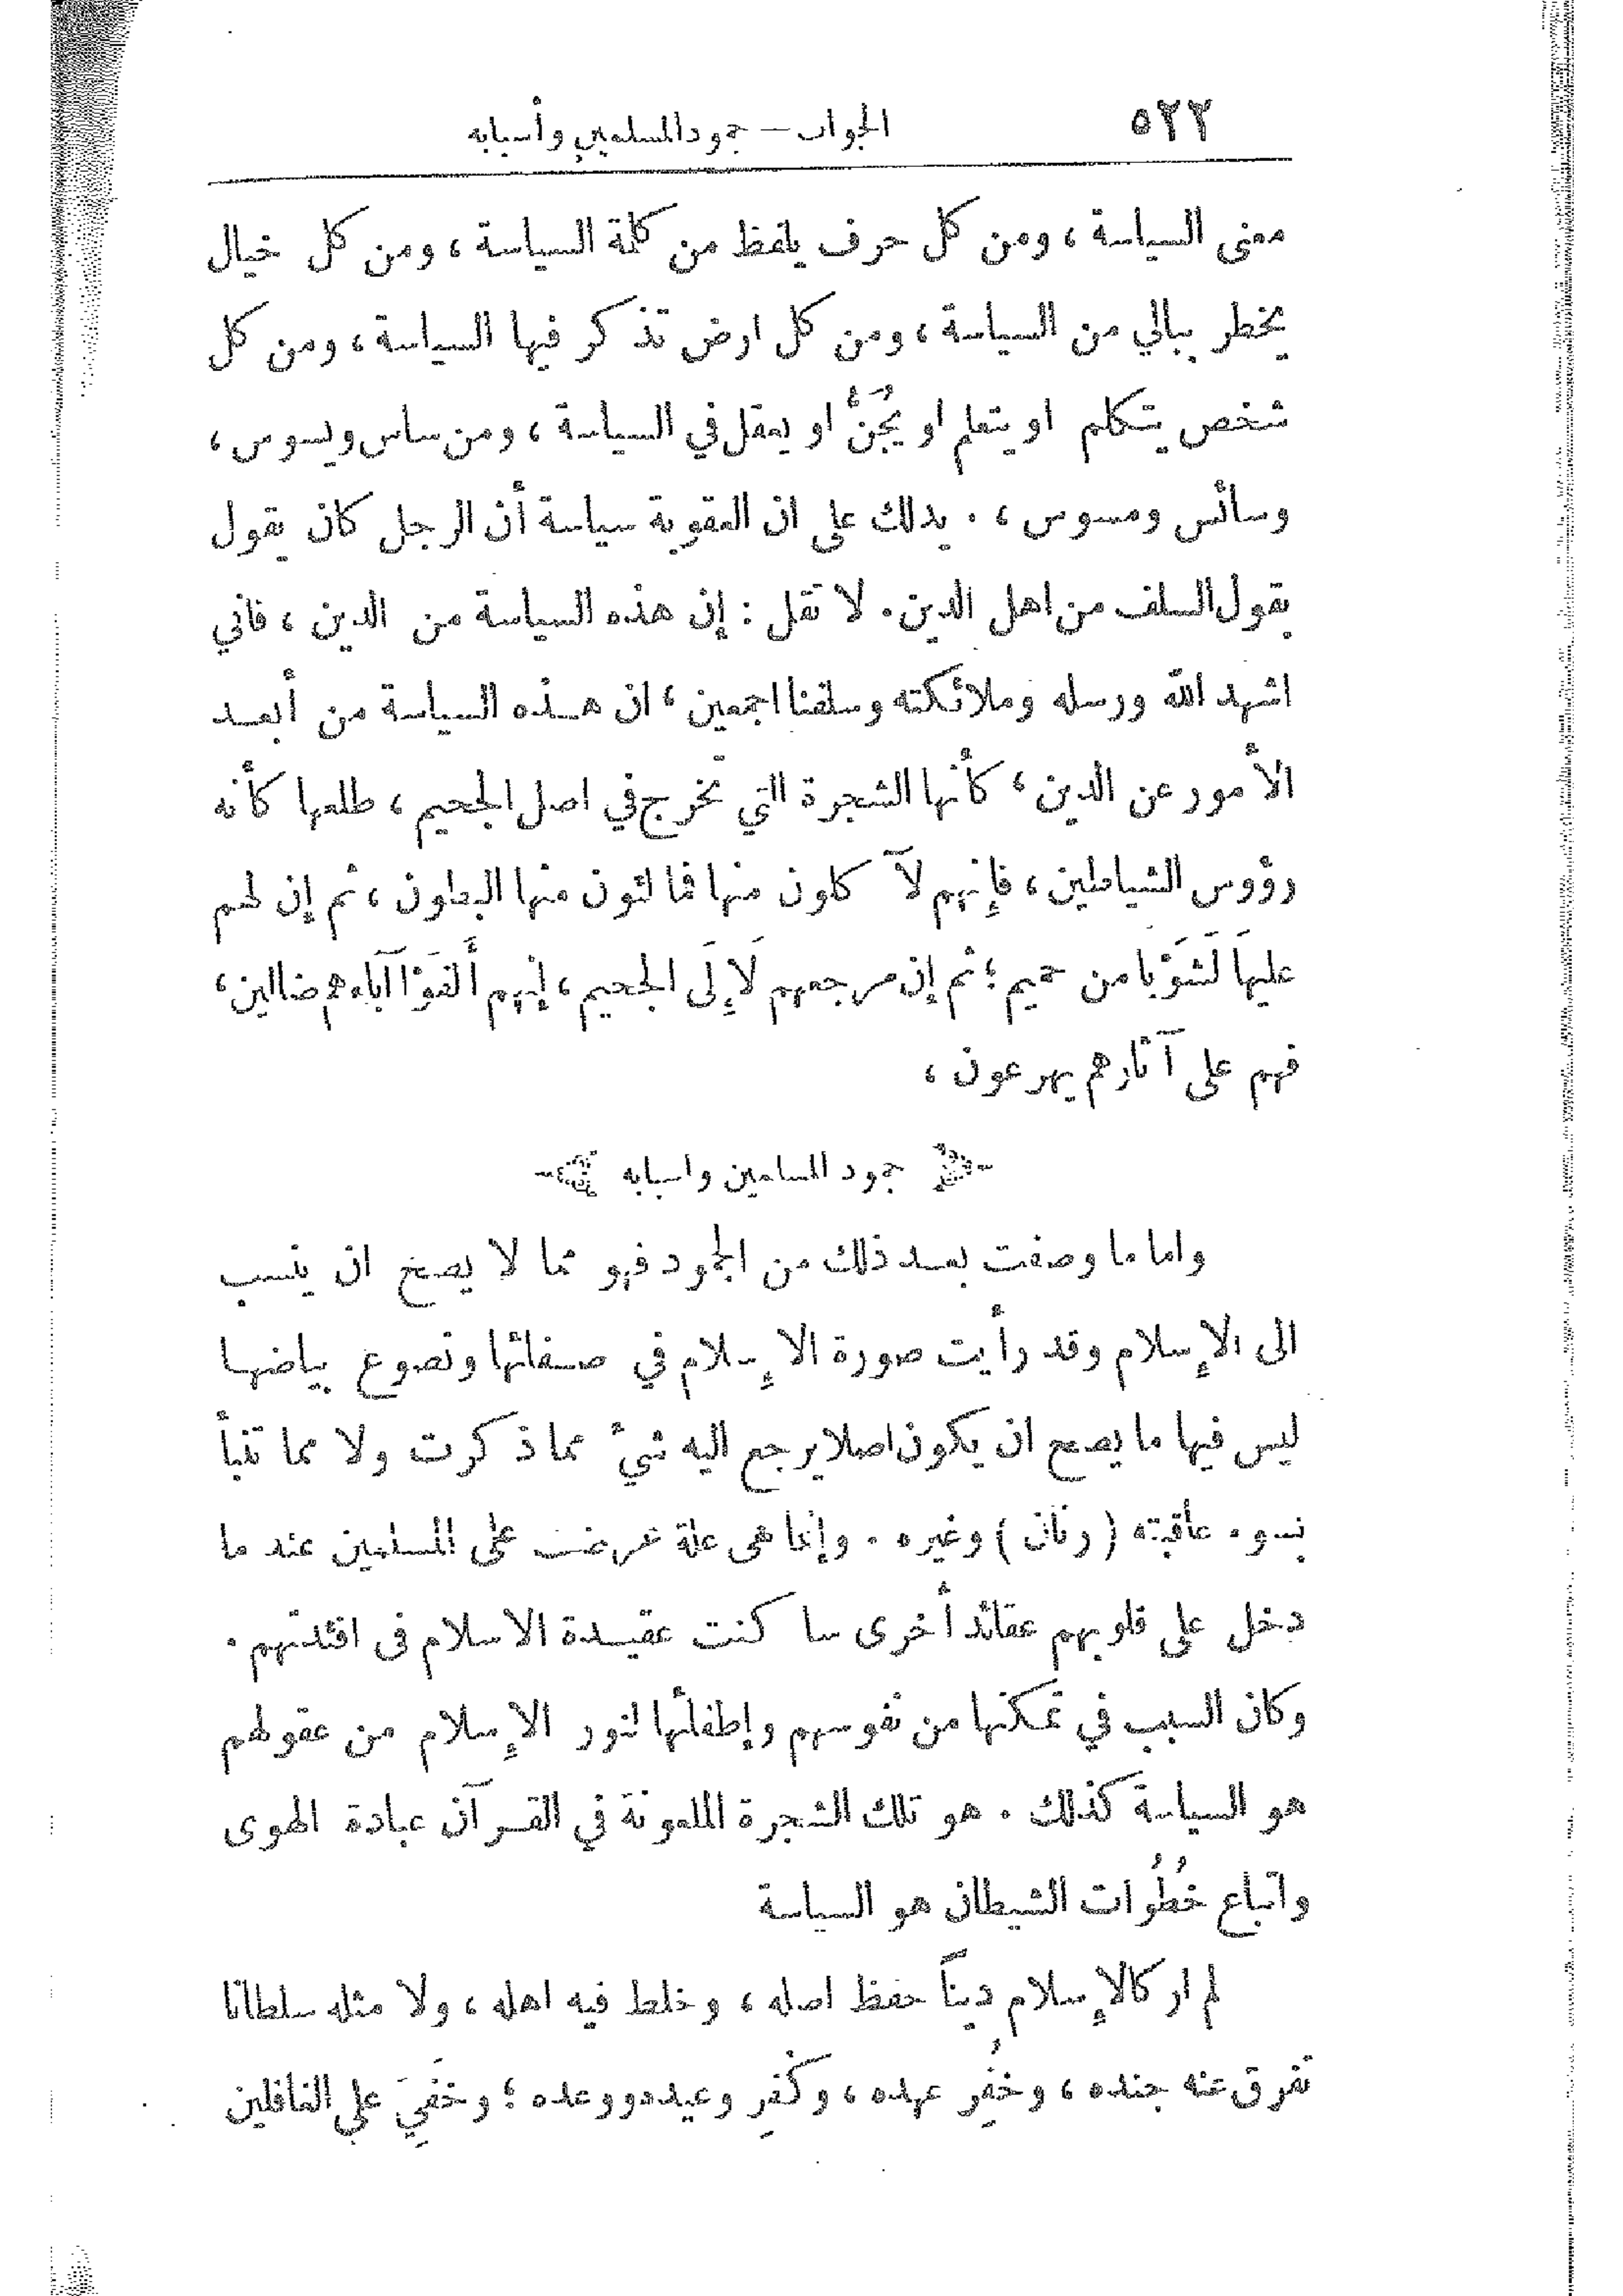 ٥٢٢
الجواب — جمود المسلمين وأسبابه
معنى السياسة ، ومن كل حرف يلفظ من كلمة السياسة ، ومن كل خيال
يخطر ببالي من السياسة ، ومن كل ارض تذكر فيها السياسة ، ومن كل
شخص يتكلم او يتعلم او يُجَنُّ او يعقل في السياسة ، ومن ساس ويسوس ،
وسائس ومسوس ، . يدلك على ان العقوبة سياسة أن الرجل كان يقول
بقول السلف من اهل الدين . لا تقل : إن هذه السياسة من الدين ، فاني
اشهد الله ورسله وملائكته وسلفنا اجمعين ، ان هذه السياسة من أبعد
الأمور عن الدين ، كأنها الشجرة التي تخرج في اصل الجحيم ، طلعها كأنه
رؤوس الشياطين ، فإنهم لآكلون منها فمالئون منها البطون ، ثم إن لهم
عليها لَشَوْبا من حميم ؛ ثم إن مرجعهم لَإِلَى الجحيم ، إنهم أَلفَوْا آباءهم ضالين ،
فهم على آثارهم يهرعون ،
جمود المسلمين واسبابه
واما ما وصفت بعد ذلك من الجمود فهو مما لا يصح ان ينسب
الى الإسلام وقد رأيت صورة الإسلام في صفائها ونصوع بياضها
ليس فيها ما يصح ان يكون اصلا يرجع اليه شيءٌ مما ذكرت ولا مما تنبأ
بسوء عاقبته ( رنان ) وغيره . وإنما هى علة عرضت على المسلمين عند ما
دخل على قلوبهم عقائد أخرى ساكنت عقيدة الاسلام فى افئدتهم .
وكان السبب في تمكنها من نفوسهم وإطفائها لنور الإسلام من عقولهم
هو السياسة كذلك . هو تلك الشجرة الملعونة في القرآن عبادة الهوى
واتباع خُطُوات الشيطان هو السياسة
لم ار كالإسلام ديناً حفظ اصله ، وخلط فيه اهله ، ولا مثله سلطانا
تفرق عنه جنده ، وخُفِر عهده ، وكُفِر وعيده ووعده ؛ وخَفِيَ على الغافلين